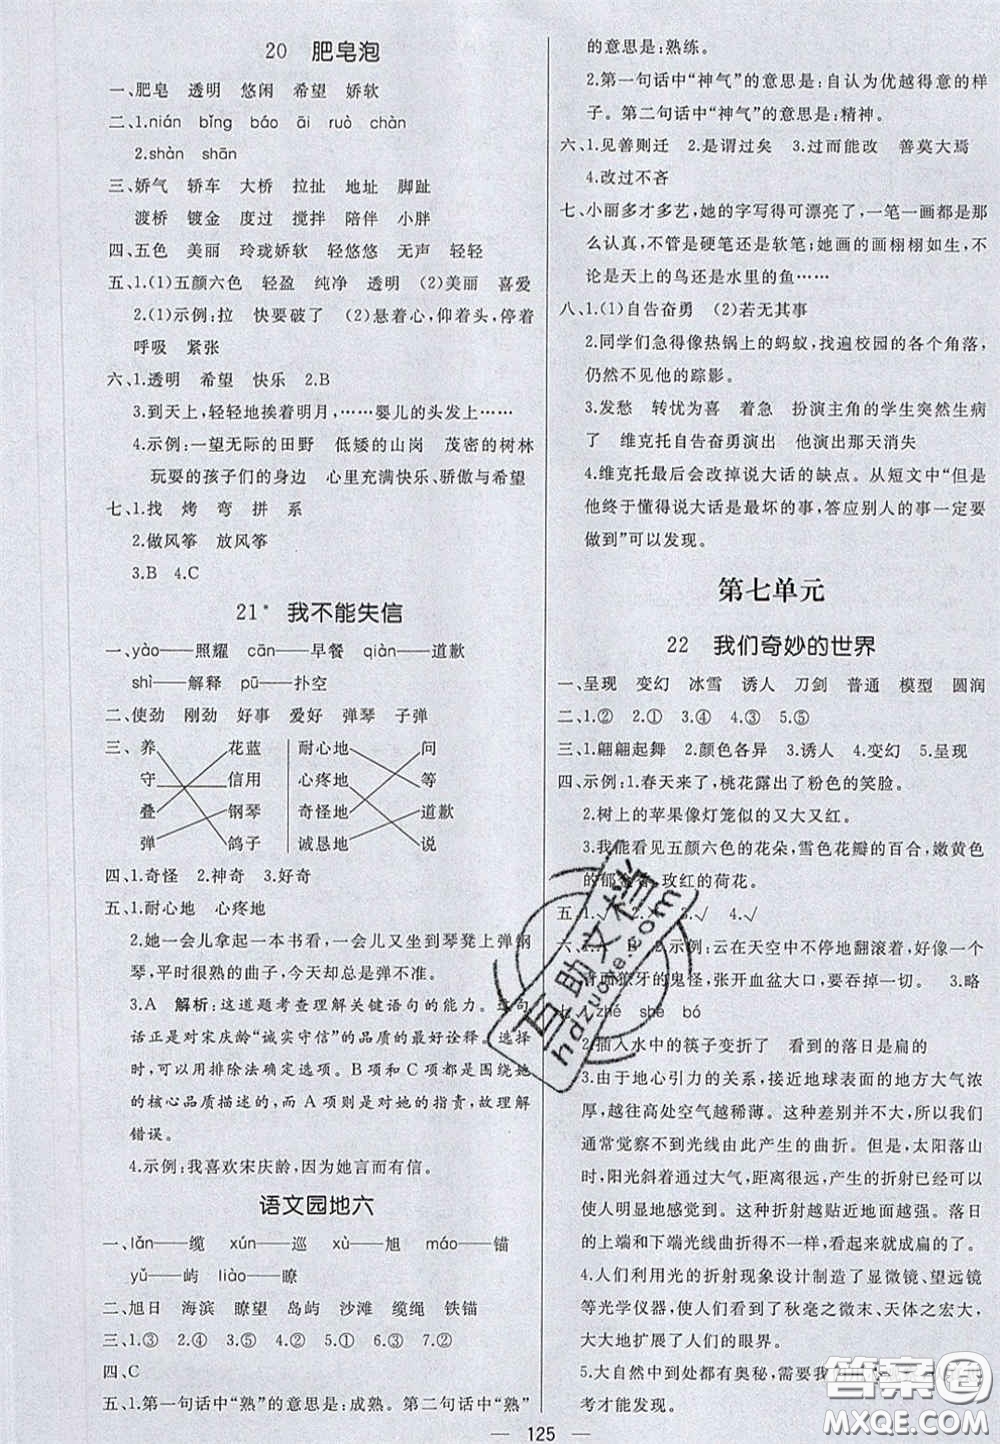 20 肥皂泡
一、肥皂 透明 悠闲 希望 娇软
二、1.nián bǐng báo āi ruò chàn
2.shàn shān
三、娇气 轿车 大桥 拉扯 地址 脚趾
渡桥 镀金 度过 搅拌 陪伴 小胖
四、五色 美丽 玲珑娇软 轻悠悠 无声 轻轻
五、1.(1)五颜六色 轻盈 纯净 透明 (2)美丽 喜爱
2.(1)示例:拉 快要破了 (2)悬着心,仰着头,停着
呼吸 紧张
六、1.透明 希望 快乐 2.B
3.到天上,轻轻地挨着明月,……婴儿的头发上……
4.示例:一望无际的田野 低矮的山岗 茂密的树林
玩耍的孩子们的身边 心里充满快乐、骄傲与希望
七、1.找 烤 弯 拼 系
2.做风筝 放风筝
3.B 4.C
21* 我不能失信
一、yào——照耀 cān——早餐 qiàn——道歉
shì——解释 pū——扑空
二、使劲 刚劲 好事 爱好 弹琴 子弹
三、养 花蓝 耐心地 问
守 信用 心疼地 等
叠 钢琴 奇怪地 道歉
弹 鸽子 诚恳地 说
四、1.奇怪 2.神奇 3.好奇
五、1.耐心地 心疼地
2.她一会儿拿起一本书看,一会儿又坐到琴凳上弹钢
琴,平时很熟的曲子,今天却总是弹不准。
3.A 解析:这道题考查理解关键语句的能力。这句
话正是对宋庆龄“诚实守信”的品质的最好诠释,选择
时,可以用排除法确定选项。B项和C项都是围绕她
的核心品质描述的,而A项则是对她的指责,故理解
错误。
4.示例:我喜欢宋庆龄,因为她言而有信。
语文园地六
一、lǎn——缆 xún——巡 xù——旭 máo——锚
yǔ——屿 liào——瞭
二、旭日 海滨 瞭望 岛屿 沙滩 缆绳 铁锚
三、1.③ 2.④ 3.⑤ 4.⑤ 5.① 6.③ 7.②
四、C
五、1.第一句话中“熟”的意思是:成熟。第二句话中“熟”
的意思是:熟练。
2.第一句话中“神气”的意思是:自认为优越得意的样
子。第二句话中“神气”的意思是:精神。
六、1.见善则迁 2.是谓过矣 3.过而能改 善莫大焉
4.改过不吝
七、小丽多才多艺,她的字写得可漂亮了,一笔一画都是那
么认真,不管是硬笔还是软笔;她画的画栩栩如生,不
论是天上的鸟还是水里的鱼……
八、1.(1)自告奋勇 (2)若无其事
2.同学们急得像热锅上的蚂蚁,找遍校园的各个角落,
仍然不见他的踪影。
3.发愁 转忧为喜 着急 扮演主角的学生突然生病
了 维克托自告奋勇演出 他在演出那天消失
4.维克托最后会改掉说大话的缺点。从短文中“但是
他终于懂得说大话是最坏的事,答应别人的事一定要
做到”可以发现。
第七单元
22 我们奇妙的世界
一、呈现 变幻 冰雪 诱人 刀剑 普通 模型 圆润
二、1.② 2.① 3.④ 4.③ 5.⑤
三、1.翩翩起舞 2.颜色各异 3.诱人 4.变幻 5.呈现
四、示例:1.春天来了,桃花露出了粉色的笑脸。
2.树上的苹果像灯笼似的又大又红。
3.我能看见五颜六色的花朵,雪色花瓣的百合,嫩黄色
的郁 玫红的荷花。
五、1.√ 2.√ 3.√ 4.√
六、1. B 2.示例:云在天空中不停地翻滚着,好像一个
青面獠牙的鬼怪,张开血盆大口,要吞掉一切。 3.略
七、1.zhé shé bó
2.插入水中的筷子变折了 看到的落日是扁的
3.由于地心引力的关系,接近地球表面的地方大气浓
厚,越往高处空气越稀薄。这种差别并不大,所以我们
通常觉察不到光线由此产生的曲折。但是,太阳落山
时,阳光斜着通过大气,距离很远,这种折射的现象就
使人明显地感觉到了。这种折射越贴近地面越强。落日
的上端和下端光线曲折得不一样,看起来就成扁的了。
4.人们利用光的折射现象设计制造了显微镜、望远镜
等光学仪器,使人们看到了秋毫之微末、天体之宏大,
大大地扩展了人们的眼界。
5.大自然中到处都有奥秘,需要我
考才能发现。
125
百助文档
hdzuoye.com
答案圈
MXQE.COM